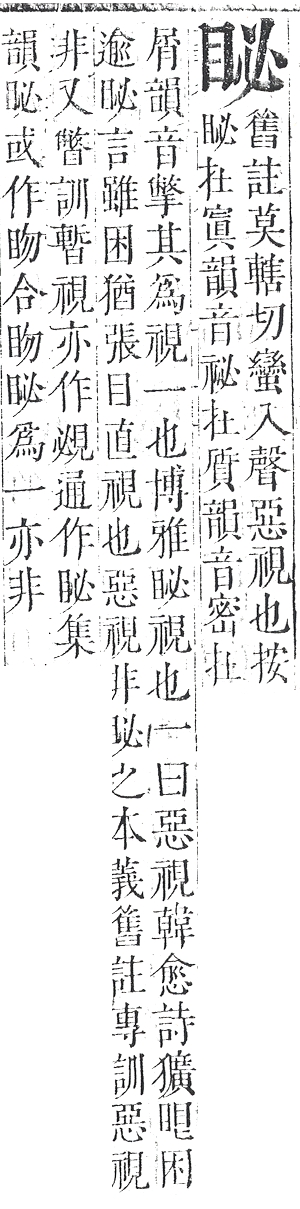 䀣
舊註莫轄切蠻入聲惡視也按
䀣在寘韻音祕在質韻音密在
屑韻音撆其爲視一也博雅䀣視也一曰惡視韓愈詩獷眼困
逾䀣言雖困猶張目直視也惡視非䀣之本義舊註專訓惡視
非又瞥訓暫視亦作覕通作䀣集
韻䀣或作䀛合䀛䀣爲一亦非